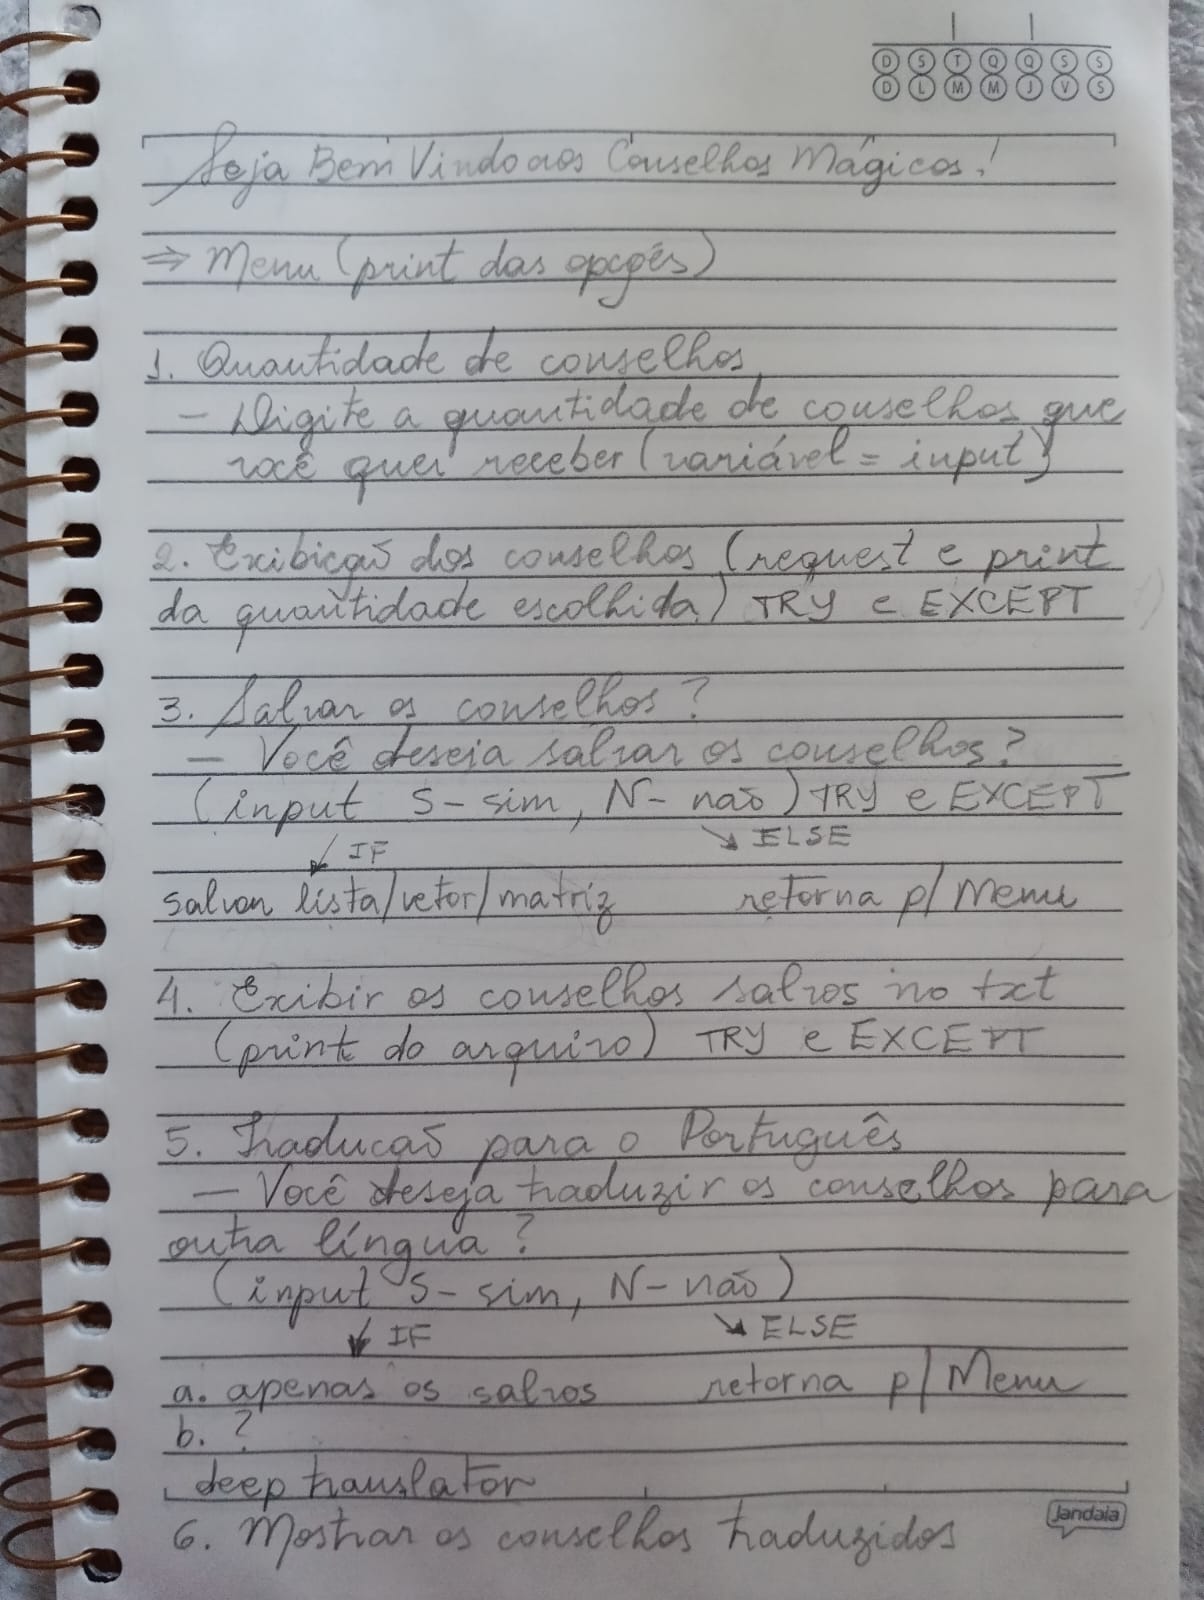 D S T Q Q S S
D L M M J V S
Seja Bem Vindo aos Conselhos Mágicos!
⇒ Menu (print das opções)
1. Quantidade de conselhos
- Digite a quantidade de conselhos que
você quer receber (variável = input)
2. Exibição dos conselhos (request e print
da quantidade escolhida) TRY e EXCEPT
3. Salvar os conselhos?
- Você deseja salvar os conselhos?
(input S- sim, N- não) TRY e EXCEPT
↙ IF ↘ ELSE
salvar lista/vetor/matriz retorna p/ Menu
4. Exibir os conselhos salvos no txt
(print do arquivo) TRY e EXCEPT
5. Tradução para o Português
- Você deseja traduzir os conselhos para
outra língua?
(input S- sim, N- não)
↙ IF ↘ ELSE
a. apenas os salvos retorna p/ Menu
b. ?
deep translator
Jandaia
6. Mostrar os conselhos traduzidos